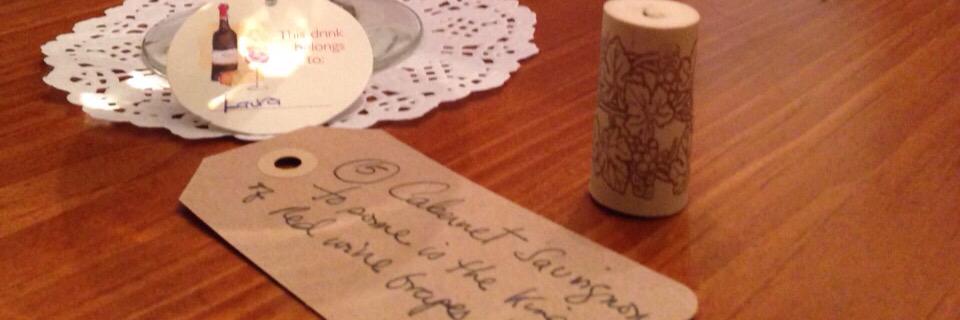 This drink
belongs
to:
Laura
5 Cabernet Sauvignon
to some is the King
of Red wine Grapes